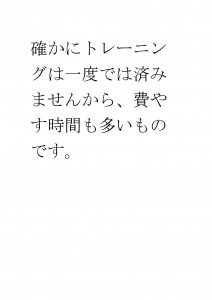 確かにトレーニン
グは一度では済み
ませんから、費や
す時間も多いもの
です。